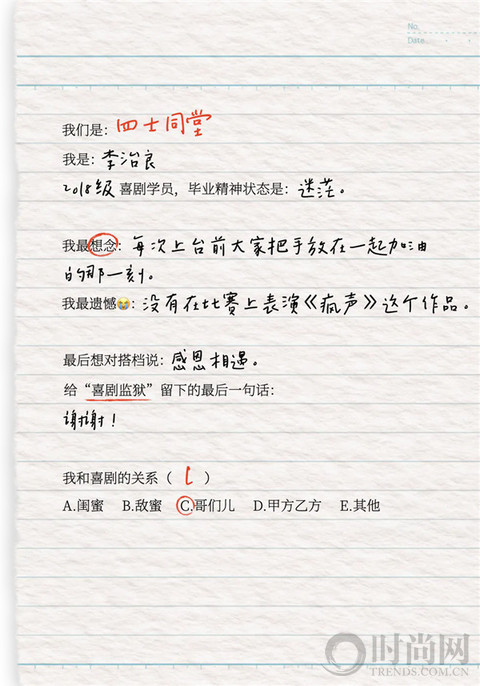 No.
Date.
我们是：四士同堂
我是：李治良
2018级 喜剧学员，毕业精神状态是：迷茫。
我最想念：每次上台前大家把手放在一起加油
的那一刻。
我最遗憾😭：没有在比赛上表演《疯声》这个作品。
最后想对搭档说：感恩相遇。
给“喜剧监狱”留下的最后一句话：
谢谢！
我和喜剧的关系（ C ）
A.闺蜜 B.敌蜜 C.哥们儿 D.甲方乙方 E.其他
时尚网
TRENDS.COM.CN